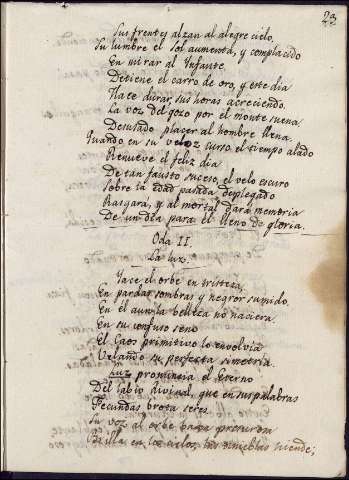 23
Sus frentes alzan al alegre cielo,
Su lumbre el sol aumenta, y complacido
En mirar al Infante
Detiene el carro de oro, y este dia
Hace durar sus horas acreciendo.
La voz del gozo por el monte suena,
Desusado placer al hombre llena,
Quando en su veloz curso el tiempo alado
Renueve el feliz dia
De tan fausto suceso, el velo escuro
Sobre la edad pasada desplegado
Rasgará, y al mortal dará memoria
De un dia para el lleno de gloria.
Oda II.
La luz.
Yace el orbe en tristeza,
En pardas sombras y negror sumido.
En él aun la belleza no naciera.
En su confuso seno
El Caos primitivo lo envolvia
Velando su perfecta simetria.
Luz pronuncia el Eterno
Del labio divinal, que en sus palabras
Fecundas brota seres.
Su voz al orbe baxa presurosa
Brilla en los cielos, las tinieblas hiende,